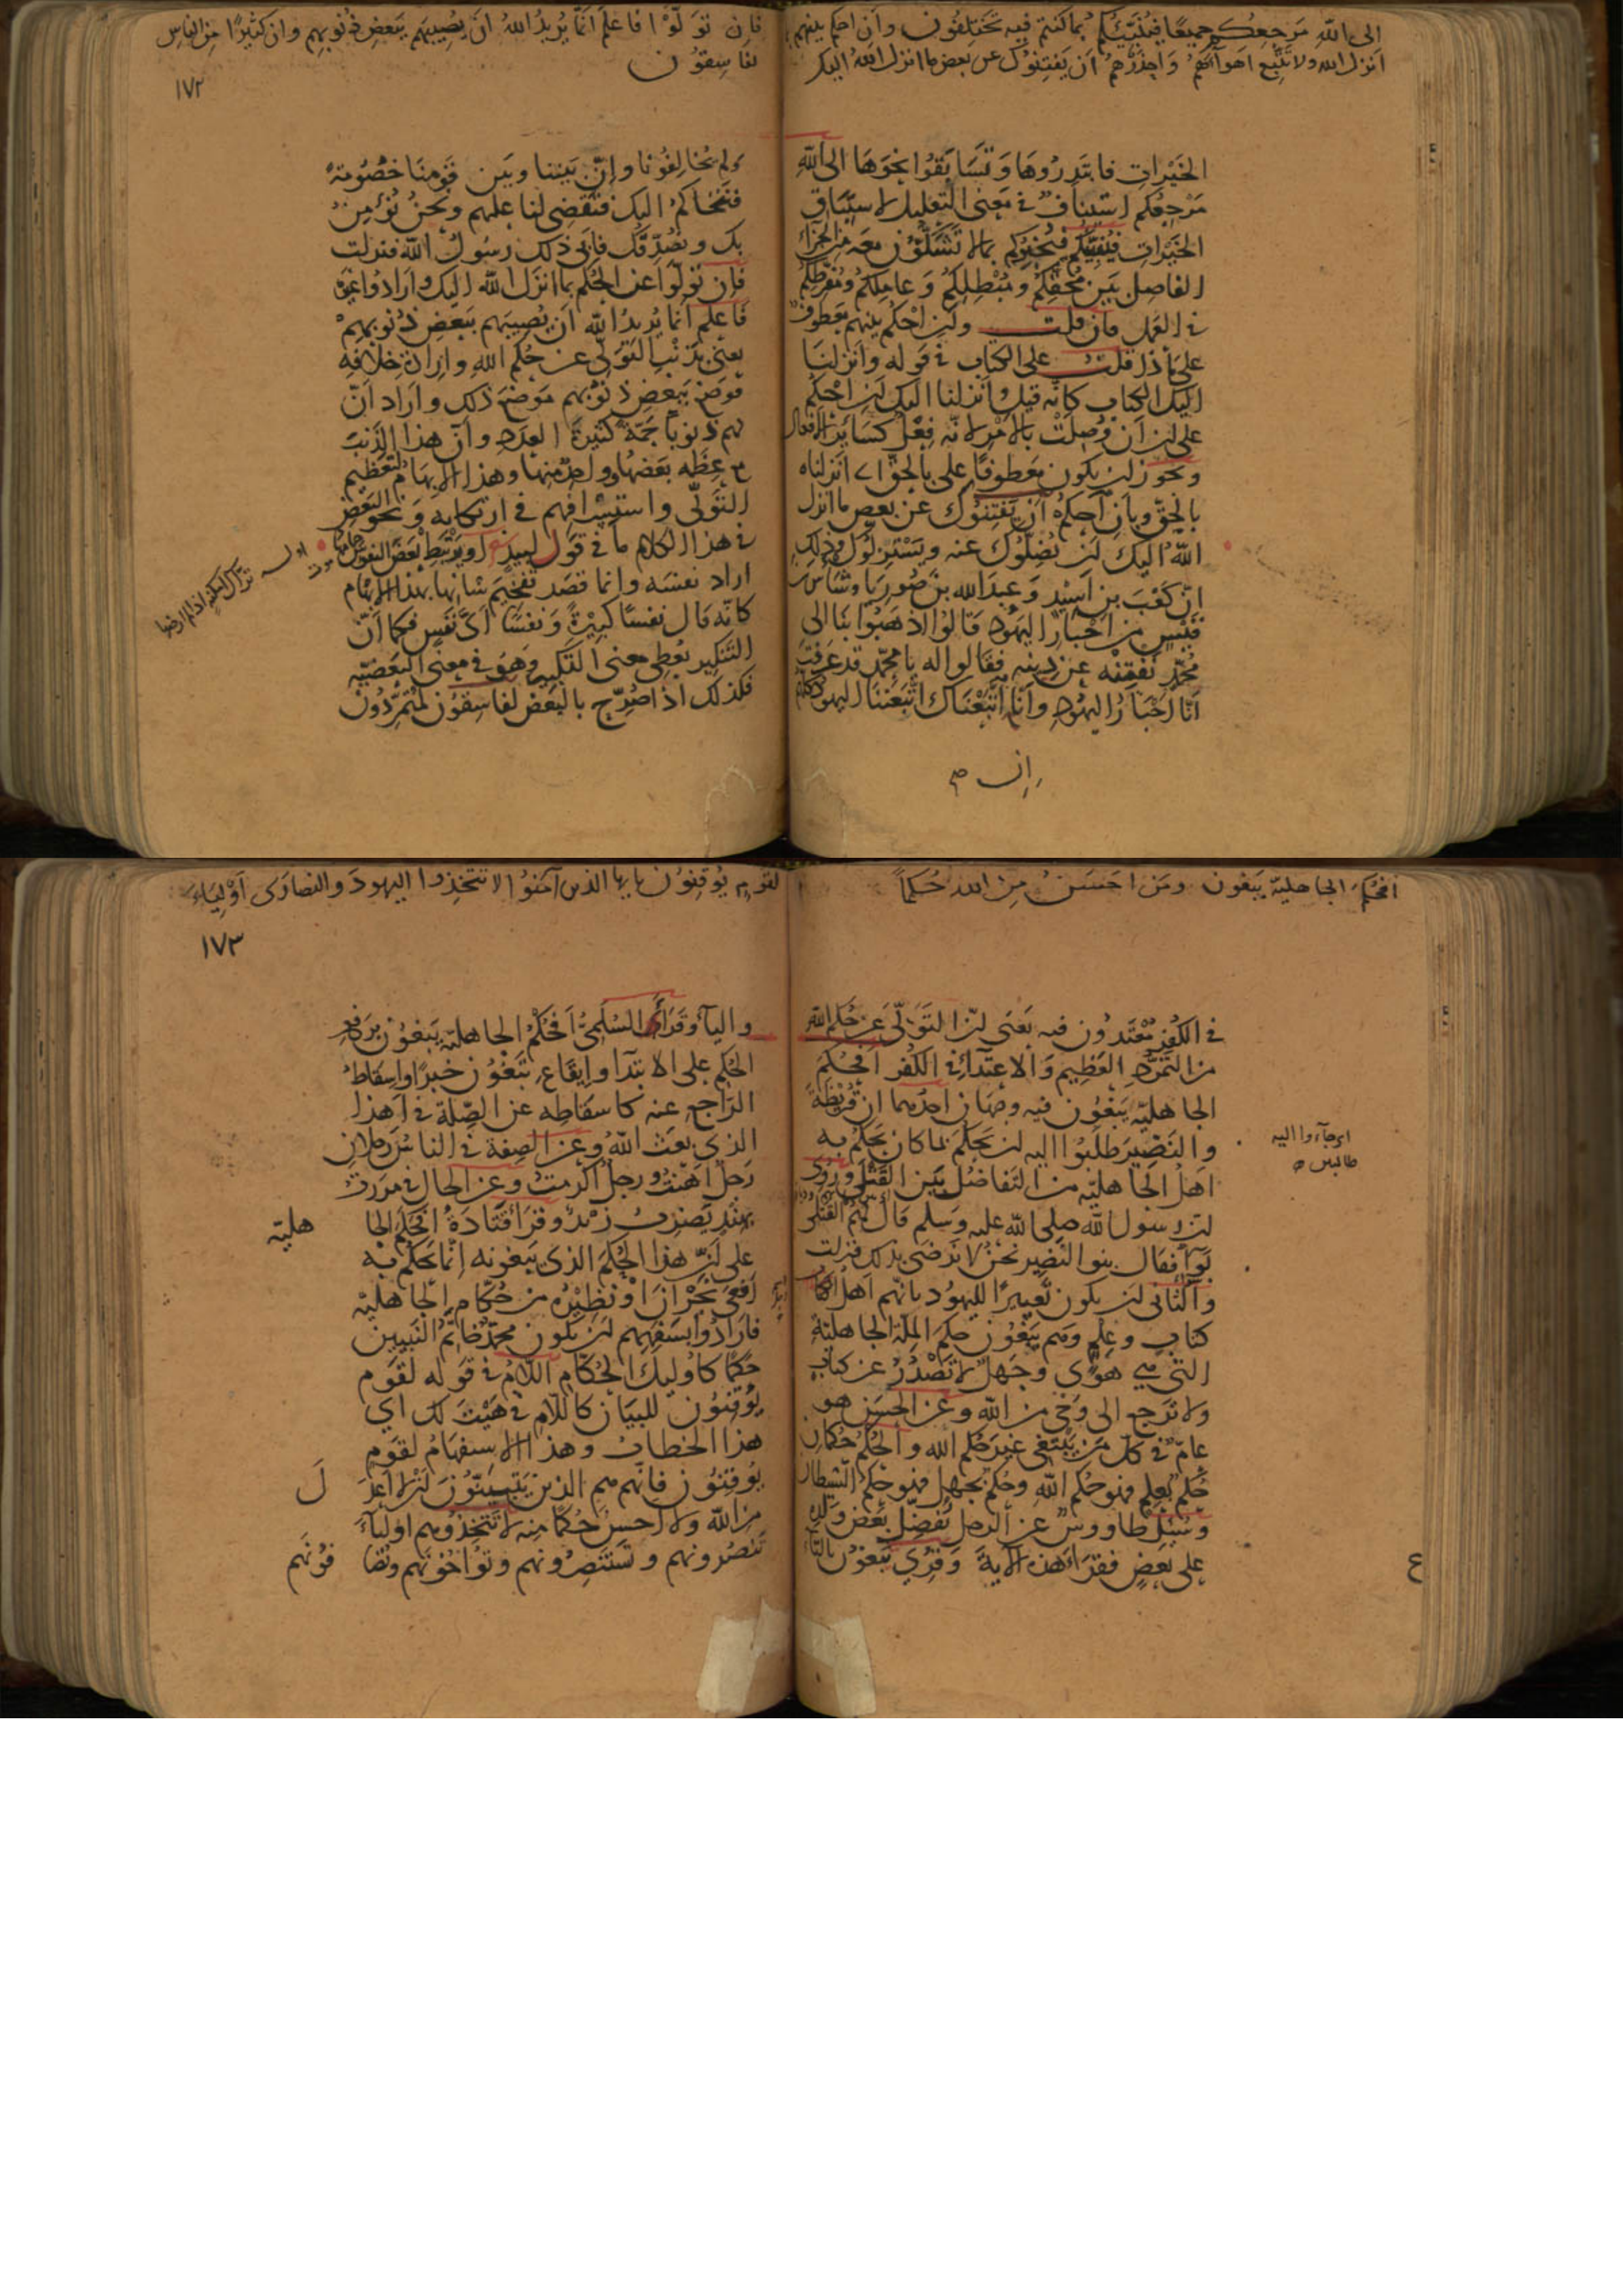 الى الله مَرجِعُكم جميعًا فيُنَبِّئُكم بما كنتم فيه تَختَلِفُون وأن احكم بينهم بما
انزل الله ولا تَتَّبِع اهوآءَهُم وَاحْذَرْهُم اَن يَفتِنُوك عن بعض ما انزل الله اليك
الخَيْراتِ فابتَدِرُوهَا وَتَسَابَقُوا نحوَهَا الى الله
مَرْجِعُكم استينافٌ فى مَعنى التعليل لاستِبَاق
الخَيْراتِ فيُنَبِّئُكم فيُخبِرُكم بما لا تَشُكّون معه من الجزآء
الفاصل بَين مُحِقِّكم ومُبْطِلِكُم وَعامِلِكم ومُفَرِّطِكُم
فى العَمَل فان قلت وان احكم بينهم معطوفٌ
على ماذا قلت على الكتاب فى قوله وانزلنا
اليك الكتاب كانّه قيل وانزلنا اليك ان احْكم
على ان اَنْ وُصِلَتْ بالامر لانّه فِعْلٌ كسَائر الافعال
ويجوز ان يكون معطوفًا على بالحقّ اى انزلناه
بالحقّ وبأنِ احكم اَنْ يَفتِنُوك عن بعض ما انزل
اللهُ اليك ان يُضِلُّوك عنه ويَسْتَزِلّوك وذلك
انّ كَعْبَ بن اَسِيْدٍ وَعبدَ الله بن صُورِيَا وشَأسَ بن
قَيْسٍ من اَحْبَار اليهُود قالوا اذهبُوا بنا الى
مُحمّدٍ نَفتِنْه عن دِينه فقالوا له يا محمّد قد عَرَفتَ
اَنّا اَحْبَارُ اليهُودِ وانّا اِن اتَّبَعْنَاك اتَّبَعَتْنَا اليهودُ كلّهم
اِن صح
فَاِن تَوَلَّوْا فاعلم اَنَّما يُريدُ اللهُ اَن يُصِيبَهم ببَعضِ ذُنُوبِهم وان كثيرًا مِن الناسِ
لفاسِقُون
١٧٢
ولم يُخَالِفُونا وانّ بَيننا وبَين قَومِنا خُصُومةً
فنتحاكمُ اليك فتَقضِى لنا عليهم ونَحنُ نُؤمِنُ
بك ونُصَدِّقك فاَبى ذلك رسُولُ الله فنزلت
فاِن تَولّوا عن الحُكم بما انزَل الله اليك وارادُوا غيرَه
فاعلَم انما يُريدُ الله ان يُصِيبَهم ببَعضِ ذُنُوبِهمْ
يعنى بذَنْبِ التَوَلّى عن حُكمِ الله وارادة خلافِه
فوضَع ببعضِ ذنوبهم مَوضعَ ذلك واراد اَنّ
لهم ذنوبًا جَمّةً كثيرةَ العدد وانّ هذا الذنبَ
مع عِظَمِه بعضُها وواحدٌ منها وهذا الابهامُ لتعظيمِ
التَوَلّى واستِسْرافِهم فى ارتكابه ونحو البَعْضِ
فى هذا الكلام ما فى قول لبيد او يَرْتَبِط بَعضَ النفوسِ حِمامُها
اراد نفسَه وانما قصَد تَفخيمَ شانِها بهذا الابهام
كانّه قال نفسًا كبيرةً ونَفسًا اَىَّ نَفسٍ فكما اَنّ
التَنكير يُعطِى معنى التكبير وهو فى معنى البَعضيّه
فكذلك اذا صُرِّح بالبَعْض لفاسِقون لَمُتَمَرِّدُون
اوله تَرّاكُ اَمكِنَةٍ اذا لم اَرضَها
اَفَحُكمَ الجاهليّة يَبغون ومَن احسَنُ مِنَ الله حُكمًا
فى الكُفر مُعْتَدُون فيه يعَنى انّ التَوَلّى عن حُكم الله
من التَمَرُّدِ العَظِيم والاعتِدَآءِ فى الكُفر افحُكم
الجاهليّه يَبغُون فيه وجهان احدُهما ان قُرَيظَةَ
والنَضِير طَلَبُوا اليه ان يَحكُم بما كان يَحكُمُ به
اَهلُ الجاهليّه من التَفاضُل بَين القَتْلَى ورُوِى
انّ رسول الله صلى الله عليه وَسلم قال لهم القَتْلى
بَوَآءٌ فقال بنو النَضِير نحنُ لا نَرضَى بذلك فنزلت
والثانى ان يكون تَعييرًا لليهُود بانّهم اَهلُ
كتابٍ وعِلمٍ وهم يَبْغُون حكمَ المِلّة الجاهليّة
التى هى هَوًى وجَهلٌ لا تَصْدُرُ عن كتابٍ
ولا تَرجع الى وَحىٍ من الله وعن الحسَن هو
عامٌّ فى كلِّ مَن يَبتَغى غيرَ حُكم الله والحُكمُ حُكمانِ
حُكمٌ بعِلمٍ فهو حُكم الله وحُكمٌ بجَهلٍ فهو حُكم الشَيطان
وسُئِل طاووسٌ عن الرجل يُفضِّل بَعضَ وَلَدِه
على بَعضٍ فقرأ هذه الآية وَقُرِىَ تَبغون بالتاء
اى جآءوا اليه
طالبين صح
ع
لقومٍ يُوقِنُون يايها الذين آمَنُوا لا تتَّخِذوا اليهودَ والنصارَى اَوْلِيَاءَ
١٧٣
واليآء وقَرَأ السُلَمىُّ اَفَحُكْمُ الجاهليّة يَبغُون برَفع
الحُكم على الابتدآء وايقاعِ يَبْغُون خبرًا واسقاطُ
الراجعِ عنه كاسقاطِه عن الصِّلة فى اَهذا
الذى بعَث اللهُ وعن الصِفة فى الناسُ رجلان
رَجلٌ اَهَنْتُ ورجلٌ اكرمتُ وعن الحال فى مررتُ
بهندٍ يَضرِبُ زيدٌ وقرَأ قَتَادَةُ اَفَحَكَمَ الجا هليّة
على اَنّ هذا الحُكمَ الذى يَبغونه انّما يَحكُم به
اَفعَى نَجْرانَ اَوْ نَظِيْرُه من حُكّامِ الجاهليّه
فارادُوا بسَفَهِهم ان يكون محمّدٌ خاتَمُ النَبِيين
حَكَمًا كاُولئك الحُكّام اللامُ فى قَوله لقَومٍ
يُوقِنُون للبيَان كاللام فى هَيْتَ لك اى
هذا الخطابُ وهذا الاستفهامُ لقَومٍ
يُوقِنُون فانّهم هم الذين يَتبَيّنُون اَنْ لا اَعدَ لَ
من الله ولا اَحسنَ حُكمًا منه لا تَتّخِذُوهم اوليآءَ
تَنصُرونهم وتَستَنصِرُونهم وتُواخُونَهم وتُصَا فُونَهم